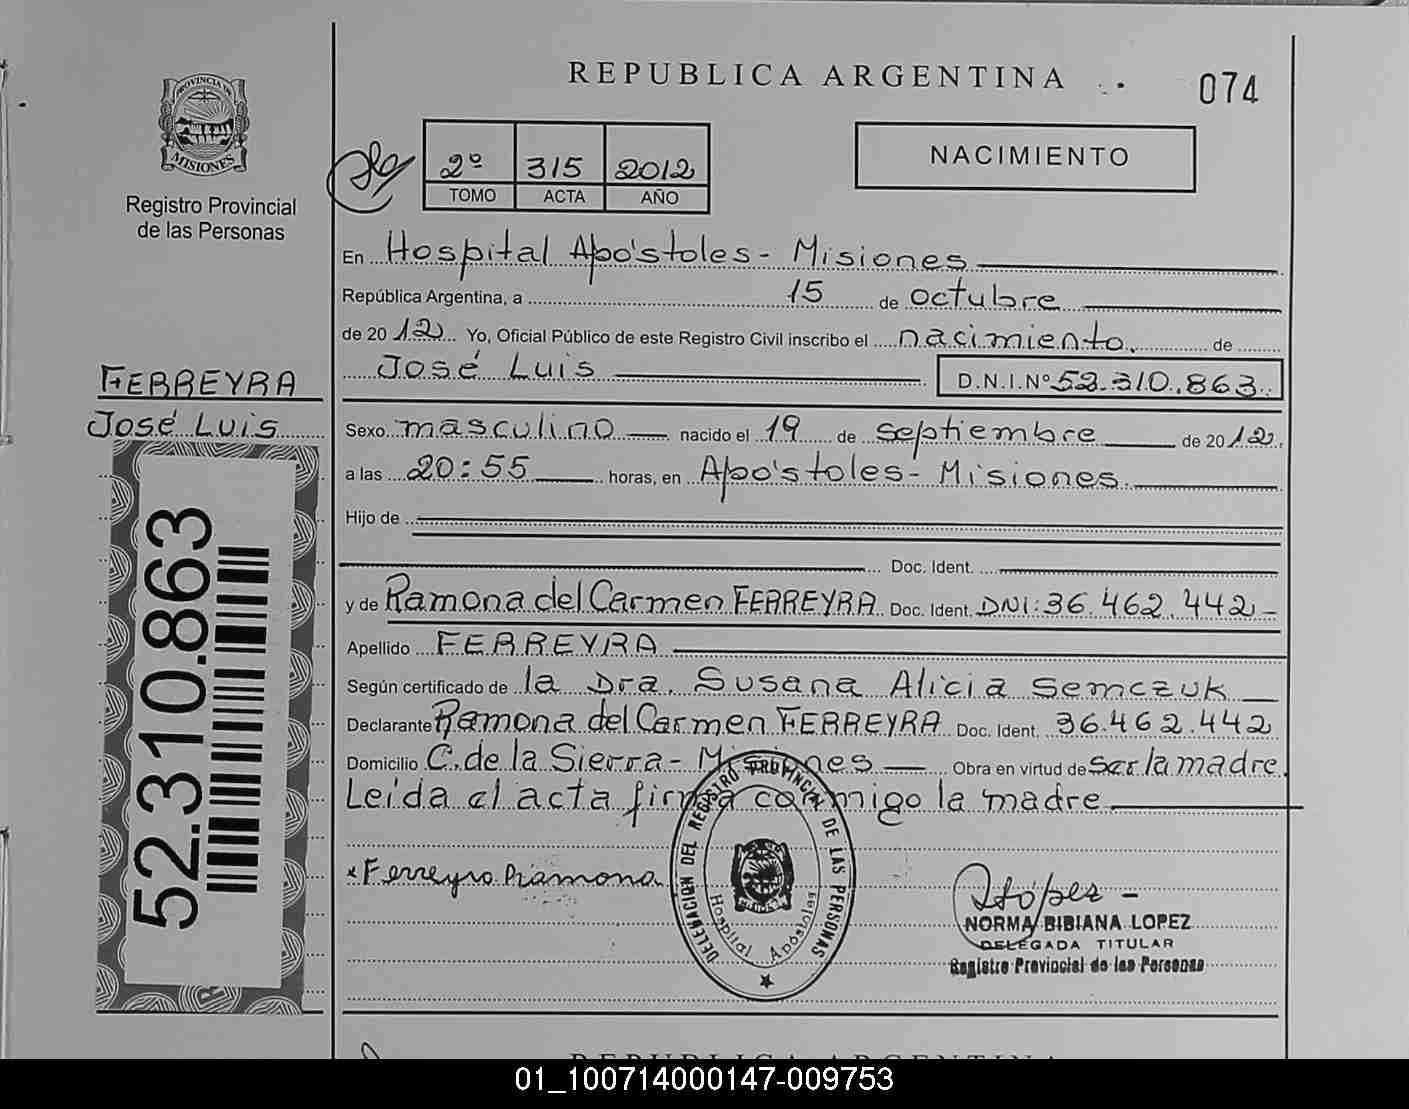 REPUBLICA ARGENTINA
074
PROVINCIA DE
MISIONES
Registro Provincial
de las Personas
2º 315 2012
TOMO ACTA AÑO
NACIMIENTO
En Hospital Apóstoles - Misiones
República Argentina, a 15 de octubre
de 2012 Yo, Oficial Público de este Registro Civil inscribo el nacimiento. de
José Luis D.N.I.Nº 52.310.863.
FERREYRA
José Luis
52.310.863
Sexo masculino nacido el 19 de septiembre de 2012.
a las 20:55 horas, en Apóstoles - Misiones.
Hijo de
Doc. Ident.
y de Ramona del Carmen FERREYRA Doc. Ident. DNI: 36.462.442 -
Apellido FERREYRA
Según certificado de la Dra. Susana Alicia Semczuk
Declarante Ramona del Carmen FERREYRA Doc. Ident. 36.462.442
Domicilio C. de la Sierra - Misiones Obra en virtud de ser la madre.
Leída el acta firma conmigo la madre
x Ferreyra Ramona
DELEGACION DEL REGISTRO PROVINCIAL DE LAS PERSONAS
Hospital Apóstoles
NLópez -
NORMA BIBIANA LOPEZ
DELEGADA TITULAR
Registro Provincial de las Personas
REPUBLICA ARGENTINA
01_100714000147-009753